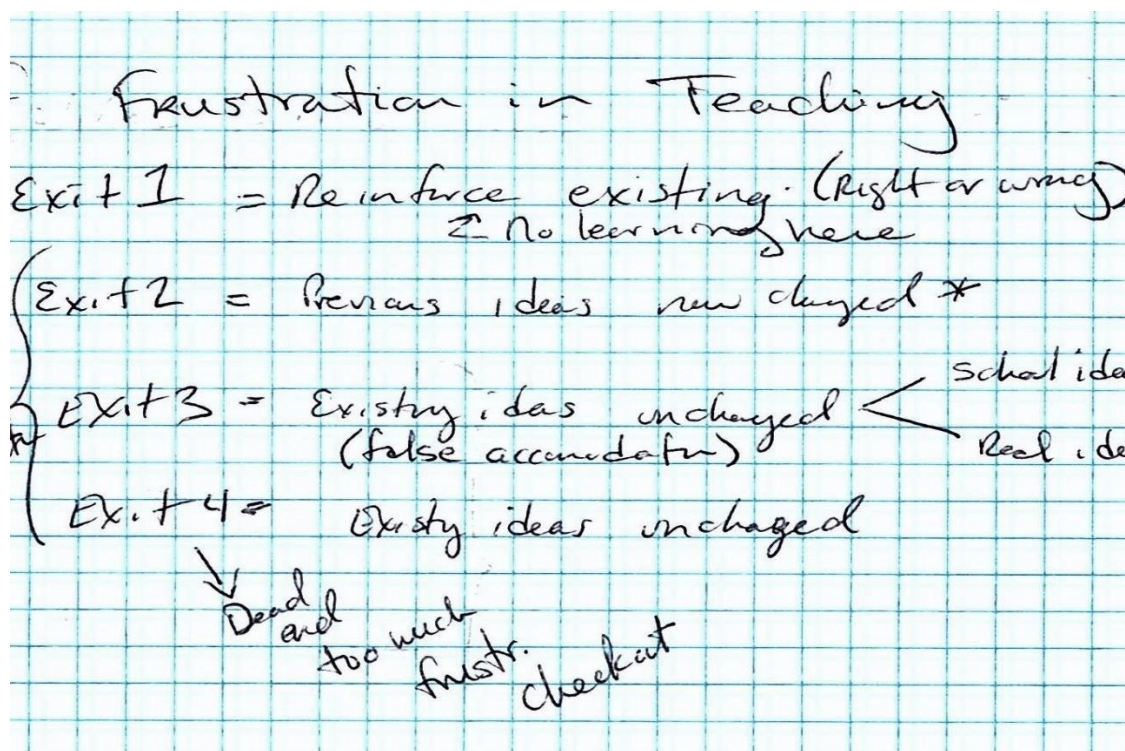 Frustration in Teaching
Exit 1 = Reinforce existing. (Right or wrong)
↑ No learning here
Exit 2 = Previous ideas now changed *
Exit 3 = Existing ideas unchanged
School idea
(false accomodation)
Real idea
Exit 4 = Existing ideas unchanged
Dead
end
too much
frustr.
checkout